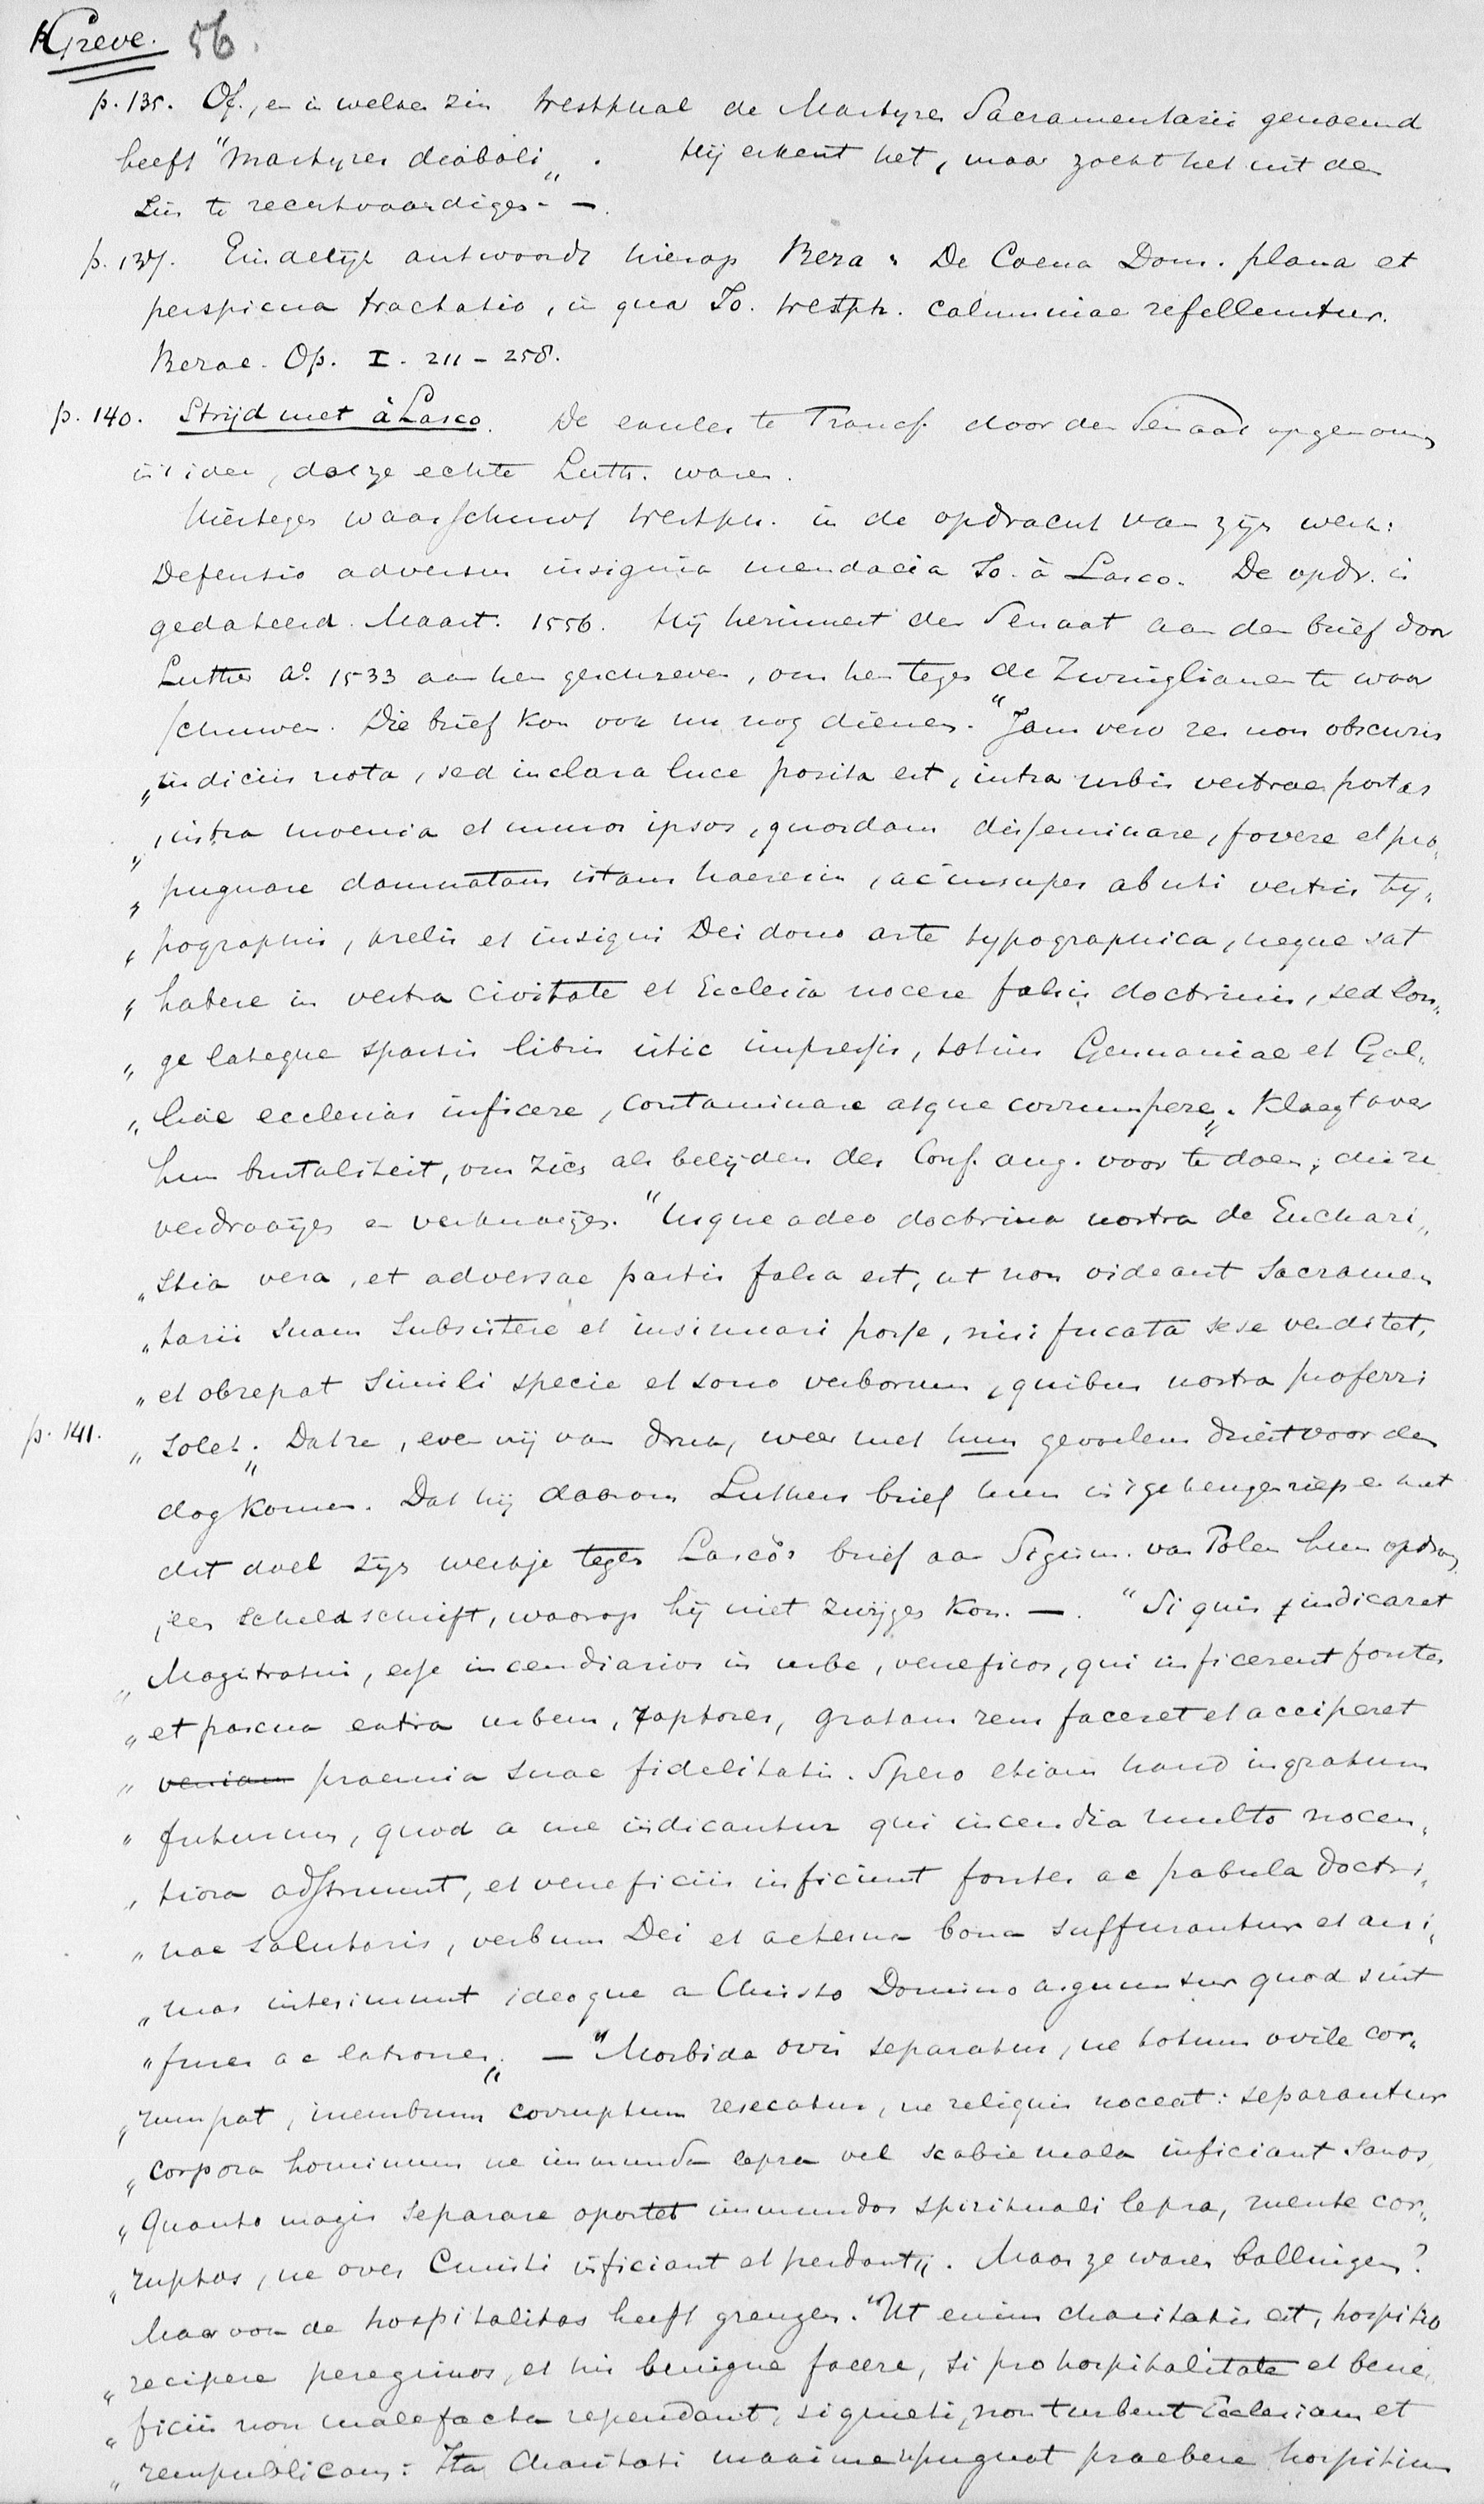 Greve. 56.
p. 135. Of, en in welken zin Westphal de Martyres Sacramentarii genoemd
heeft "Martyres diaboli". Hij erkent het, maar zoekt het uit den
zin te rechtvaardigen. —.
p. 137. Eindelijk antwoordt hierop Beza: De Coena Dom. plana et
perspicua tractatio, in qua Jo. Westph. calumniae refelluntur.
Bezae. Op. I. 211-258.
p. 140. Strijd met à Lasco. De exules te Francf. door den Senaat opgenomen
in 't idee, dat ze echte Luth. waren.
Hiertegen waarschuwt Westph. in de opdracht van zijn werk:
Defensio adversus insignia mendacia Jo. à Lasco. De opdr. is
gedateerd Maart. 1556. Hij herinnert den Senaat aan den brief door
Luther ao. 1533 aan hen geschreven, om hen tegen de Zwinglianen te waar
schuwen. Die brief kon ook nu nog dienen. "Jam vero res non obscuris
"indiciis nota, sed in clara luce posita est, intra urbis vestrae portas
", intra moenia et muros ipsos, quosdam disseminare, fovere et pro„
" pugnare damnatam istam haeresin, ac insuper abuti vestris ty„
" pographis, prelis et insigni Dei dono arte typographica, neque sat
" habere in vestra civitate et Ecclesia nocere falsis doctrinis, sed lon„
" ge lateque sparsis libris istic impressis, totius Germaniae et Gal„
" liae ecclesias inficere, contaminare atque corrumpere". Klaagt over
hun brutaliteit, om zich als belijders der Conf. Aug. voor te doen, die ze
verdraaijen en verknoeijen. "Usque adeo doctrina nostra de Euchari„
" stia vera, et adversae partis falsa est, ut non videant Sacramen
" tarii suam subsistere et insinuari posse, nisi fucata sese venditet,
" et obrepat simili specie et sono verborum, quibus nostra proferri
p. 141. " solet". Dat ze, even vrij van druk, weer met hun gevoelen driest voor den
dag komen. Dat hij daarom Luthers brief hun in 't geheugen riep en met
dit doel zijn werkje tegen Lasco's brief aan Sigism. van Polen hun opdroeg
, een scheldschrift, waarop hij niet zwijgen kon. —. "Si quis indicaret
" Magistratui, esse incendiarios in urbe, veneficos, qui inficerent fontes
" et pascua extra urbem, raptores, gratam rem faceret et acciperet
" veniam praemia suae fidelitatis. Spero etiam haud ingratum
" futurum, quod a me indicantur qui incendia multo nocen„
" tiora adstruunt, et veneficiis inficiunt fontes ac pabula doctri„
" nae salutaris, verbum Dei et aeterna bona suffurantur et ani„
" mas interimunt ideoque a Christo Domino arguuntur quod sint
" fures ac latrones". — "Morbida ovis separatur, ne totum ovile cor„
" rumpat, membrum corruptum resecatur, ne reliquis noceat: separantur
" corpora hominum ne immunda lepra vel scabie mala inficiant sanos
" Quanto magis separare oportet immundos spirituali lepra, mente cor„
" ruptos, ne oves Christi inficiant et perdant". Maar ze waren ballingen?
Maar van de hospitalitas heeft grenzen. "Ut enim charitatis est, hospitio
" recipere peregrinos, et his benigne facere, si pro hospitalitate et bene„
" ficiis non malefacta rependant, si quieti, non turbent Ecclesiam et
" rempublicam: Ita Charitati maxime repugnat praebere hospitium